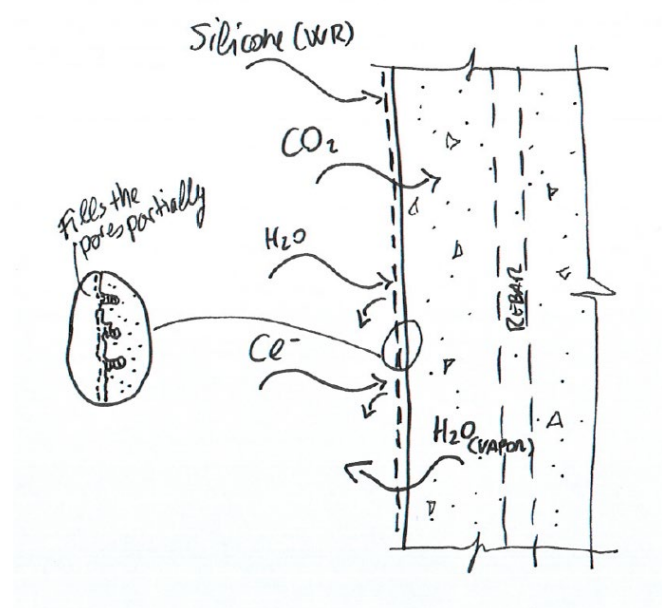 Silicone (WR)
CO₂
Fills the
pores partially
H₂O
Cl⁻
REBAR
H₂O
(VAPOR)